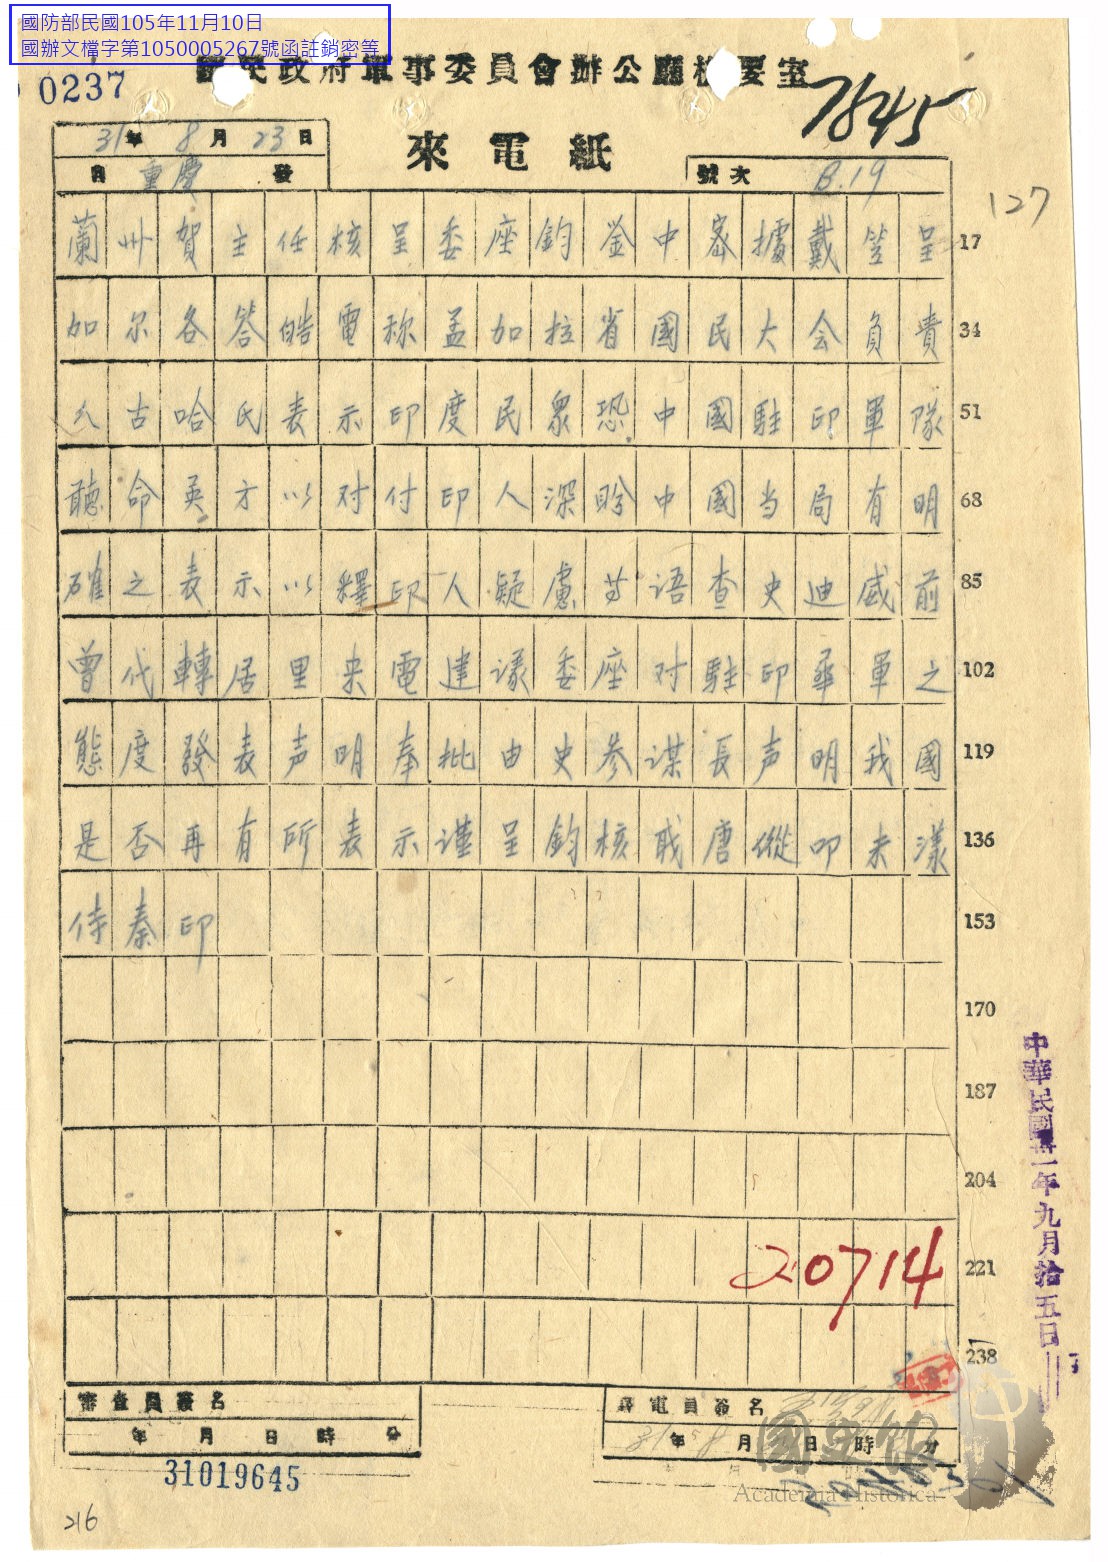 國防部民國105年11月10日
國辦文檔字第1050005267號函註銷密等
0237
國民政府軍事委員會辦公廳機要室
7645
31年8月23日
來電紙
自重慶發
號次 B.19
127
蘭州賀主任核呈委座鈞鉴中密據戴笠呈 17
加尔各答皓電称孟加拉省國民大会負責 34
人古哈氏表示印度民眾恐中國駐印軍隊 51
聽命英方以对付印人深盼中國当局有明 68
確之表示以釋印人疑慮等语查史迪威前 85
曾代轉居里来電建议委座对駐印華軍之 102
態度發表声明奉批由史参谋長声明我國 119
是否再有所表示谨呈鈞核職唐縱叩未漾 136
侍秦印 153
170
187
204
20714
221
238
中華民國卅一年九月拾五日
審查員簽名
年月日時分
譯電員簽名
31年8月 日 時 分
31019645
國史館
Academia Historica
216